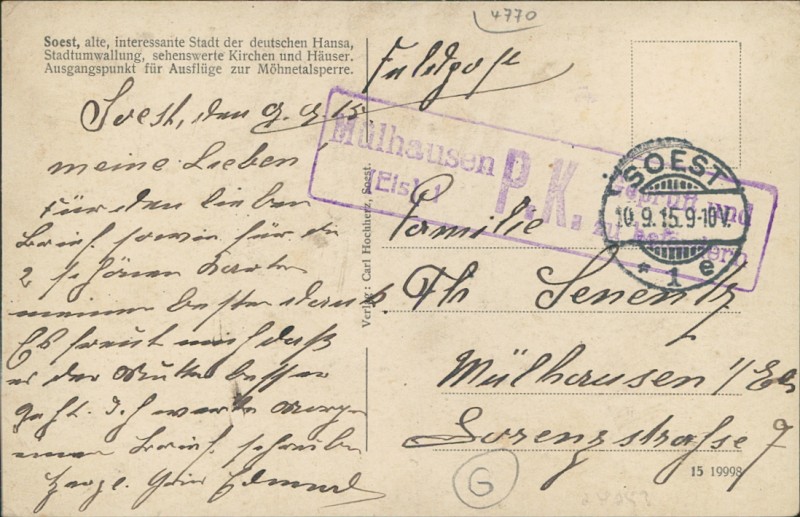 4770
Soest, alte, interessante Stadt der deutschen Hansa,
Stadtumwallung, sehenswerte Kirchen und Häuser.
Ausgangspunkt für Ausflüge zur Möhnetalsperre.
Feldpost
Soest, den 9. 9. 15
meine Lieben
Für den lieben
Brief sowie für die
2 schönen Karten
meinen besten Dank.
Es freut mich daß
es der Mutter besser
geht. Ich werde Morgen
einen Brief schreiben
Edmund
Verlag: Carl Hochherz, Soest.
Mülhausen
(Els.)
P.K.
Geprüft und
zu befördern
SOEST
10.9.15.9-10V.
* 1 e
Familie
Th
Mülhausen i/Els
Lorenzstrasse 7
15 19998
G